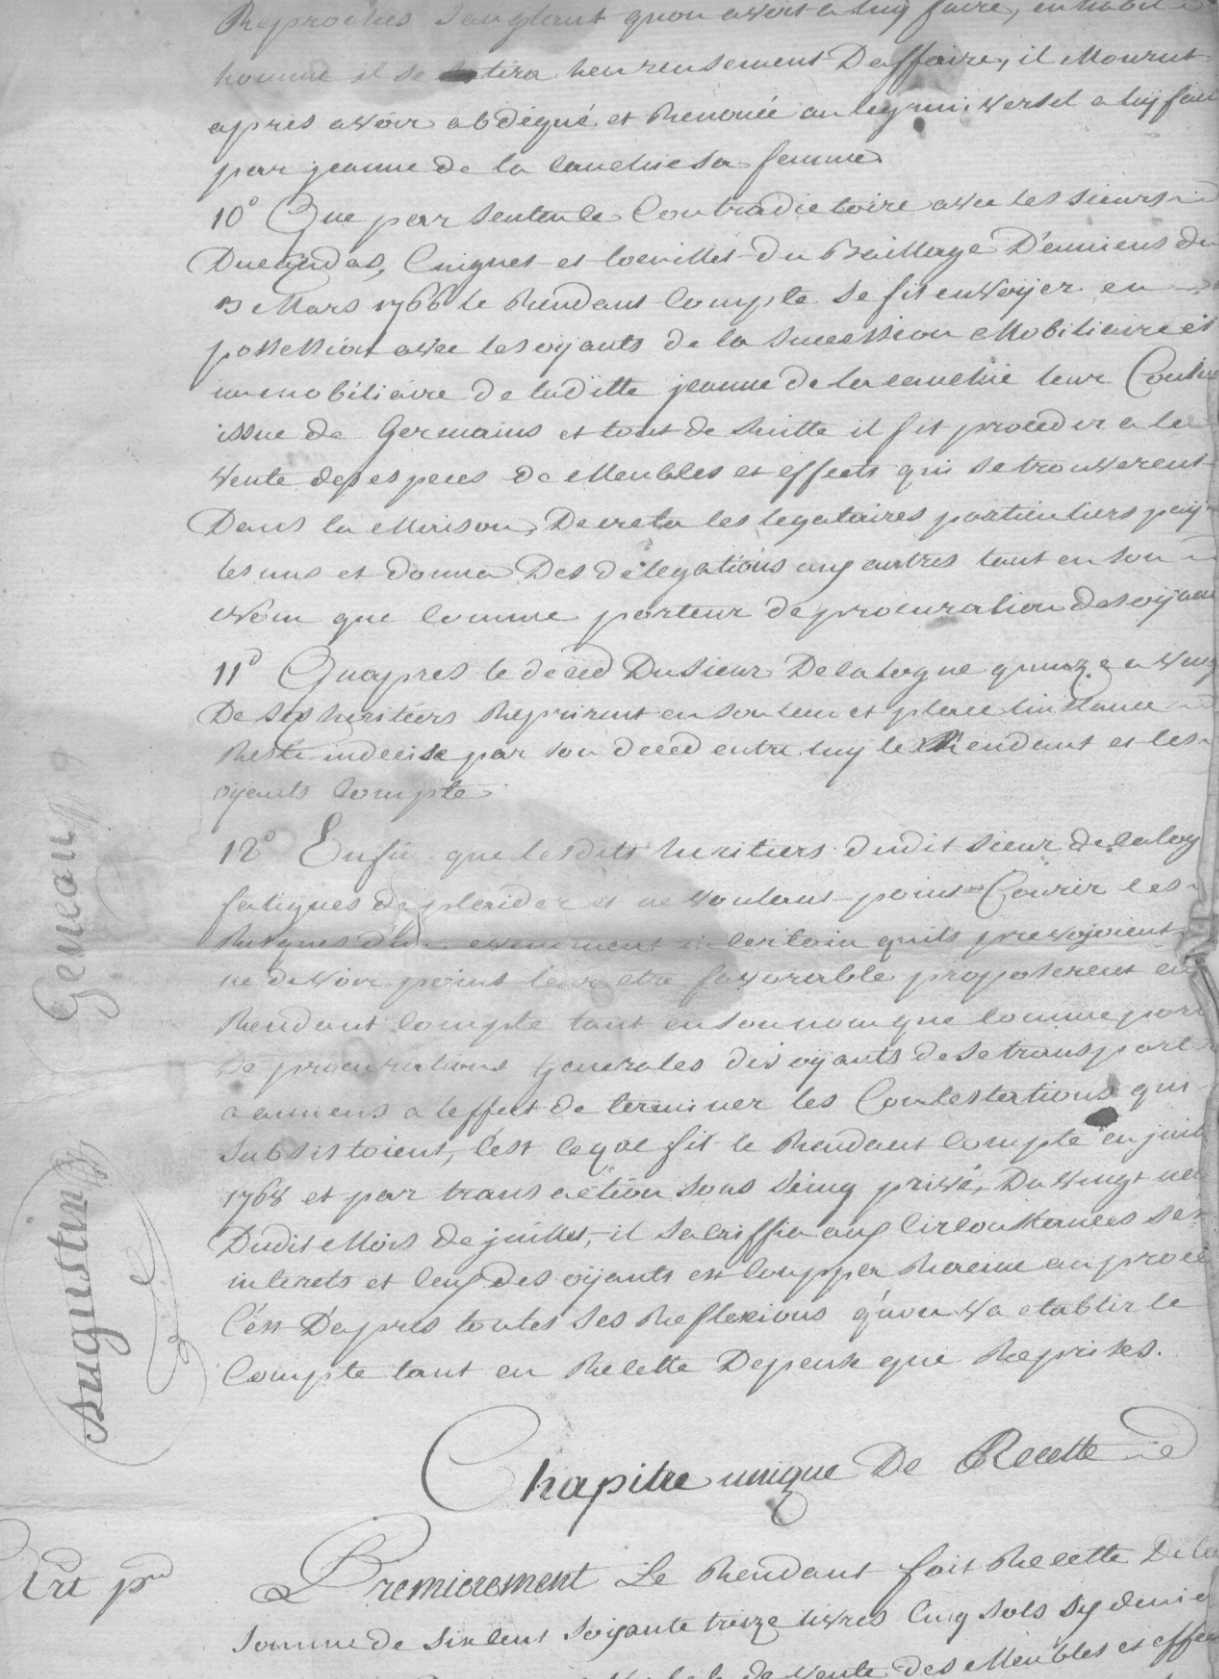 Reproches sanglant quon avoit a luy faire, en habil
homme il se tira heureusement Daffaire, il Mourut
apres avoir abdiqué et Renoncé au leg universel a luy fait
par jeanne de la cauchie sa femme
10° Que par sentence Contradictoire avec les sieurs
Cuignet et du Baillage D'amiens du
3 Mars 1766 le Rendant Compte se fit envoÿer en
possession avec les oÿants de la succession Mobiliaire et
immobiliaire de laditte jeanne de la cauchie leur Cousine
issue de Germains et tout de suitte il fit proceder a la
vente des especes de Meubles et effects qui se trouverent
Dans la Maison, Decreta les legataires particuliers paÿa
les uns et donna Des délegations aux autres tant en son
Nom que comme porteur de procuration des oÿans
11° Quapres le deced Du sieur Delalogne quinze a vingt
De ses heritiers Reprirent en son lieu et place linstance
Reste indecise par son deced entre luy le Rendant et les
oÿants Compte
12° Enfin que lesdits heritiers dudit sieur Delalog
fatigués de plaider et ne voulant point Courir les
Risques d'un evenement incertain quils prevoyoient
ne devoir point leur etre favorable proposerent au
Rendant Compte tant en son nom que comme port
De procurations Generales des oÿants de se transporter
a amiens a leffect de terminer les Contestations qui
subsistoient, C'est ce que fit le Rendant Compte en juill
1768 et par transaction sous seing privé, Du vingt neuf
Dudit Mois de juillet, il sacriffia aux Circonstances ses
interets et ceux des oÿants et Couppa Racine au procès
C'est D'apres toutes ses Reflexions qu'on va etablir le
Compte tant en Recette Depense que Reprises.
Chapitre unique De Recette
Art p.er
Premierement Le Rendant fait Recette De la
somme de six cent soixante treize livres Cinq sols six denier
de vente des Meubles et effect
Augustin Geneau